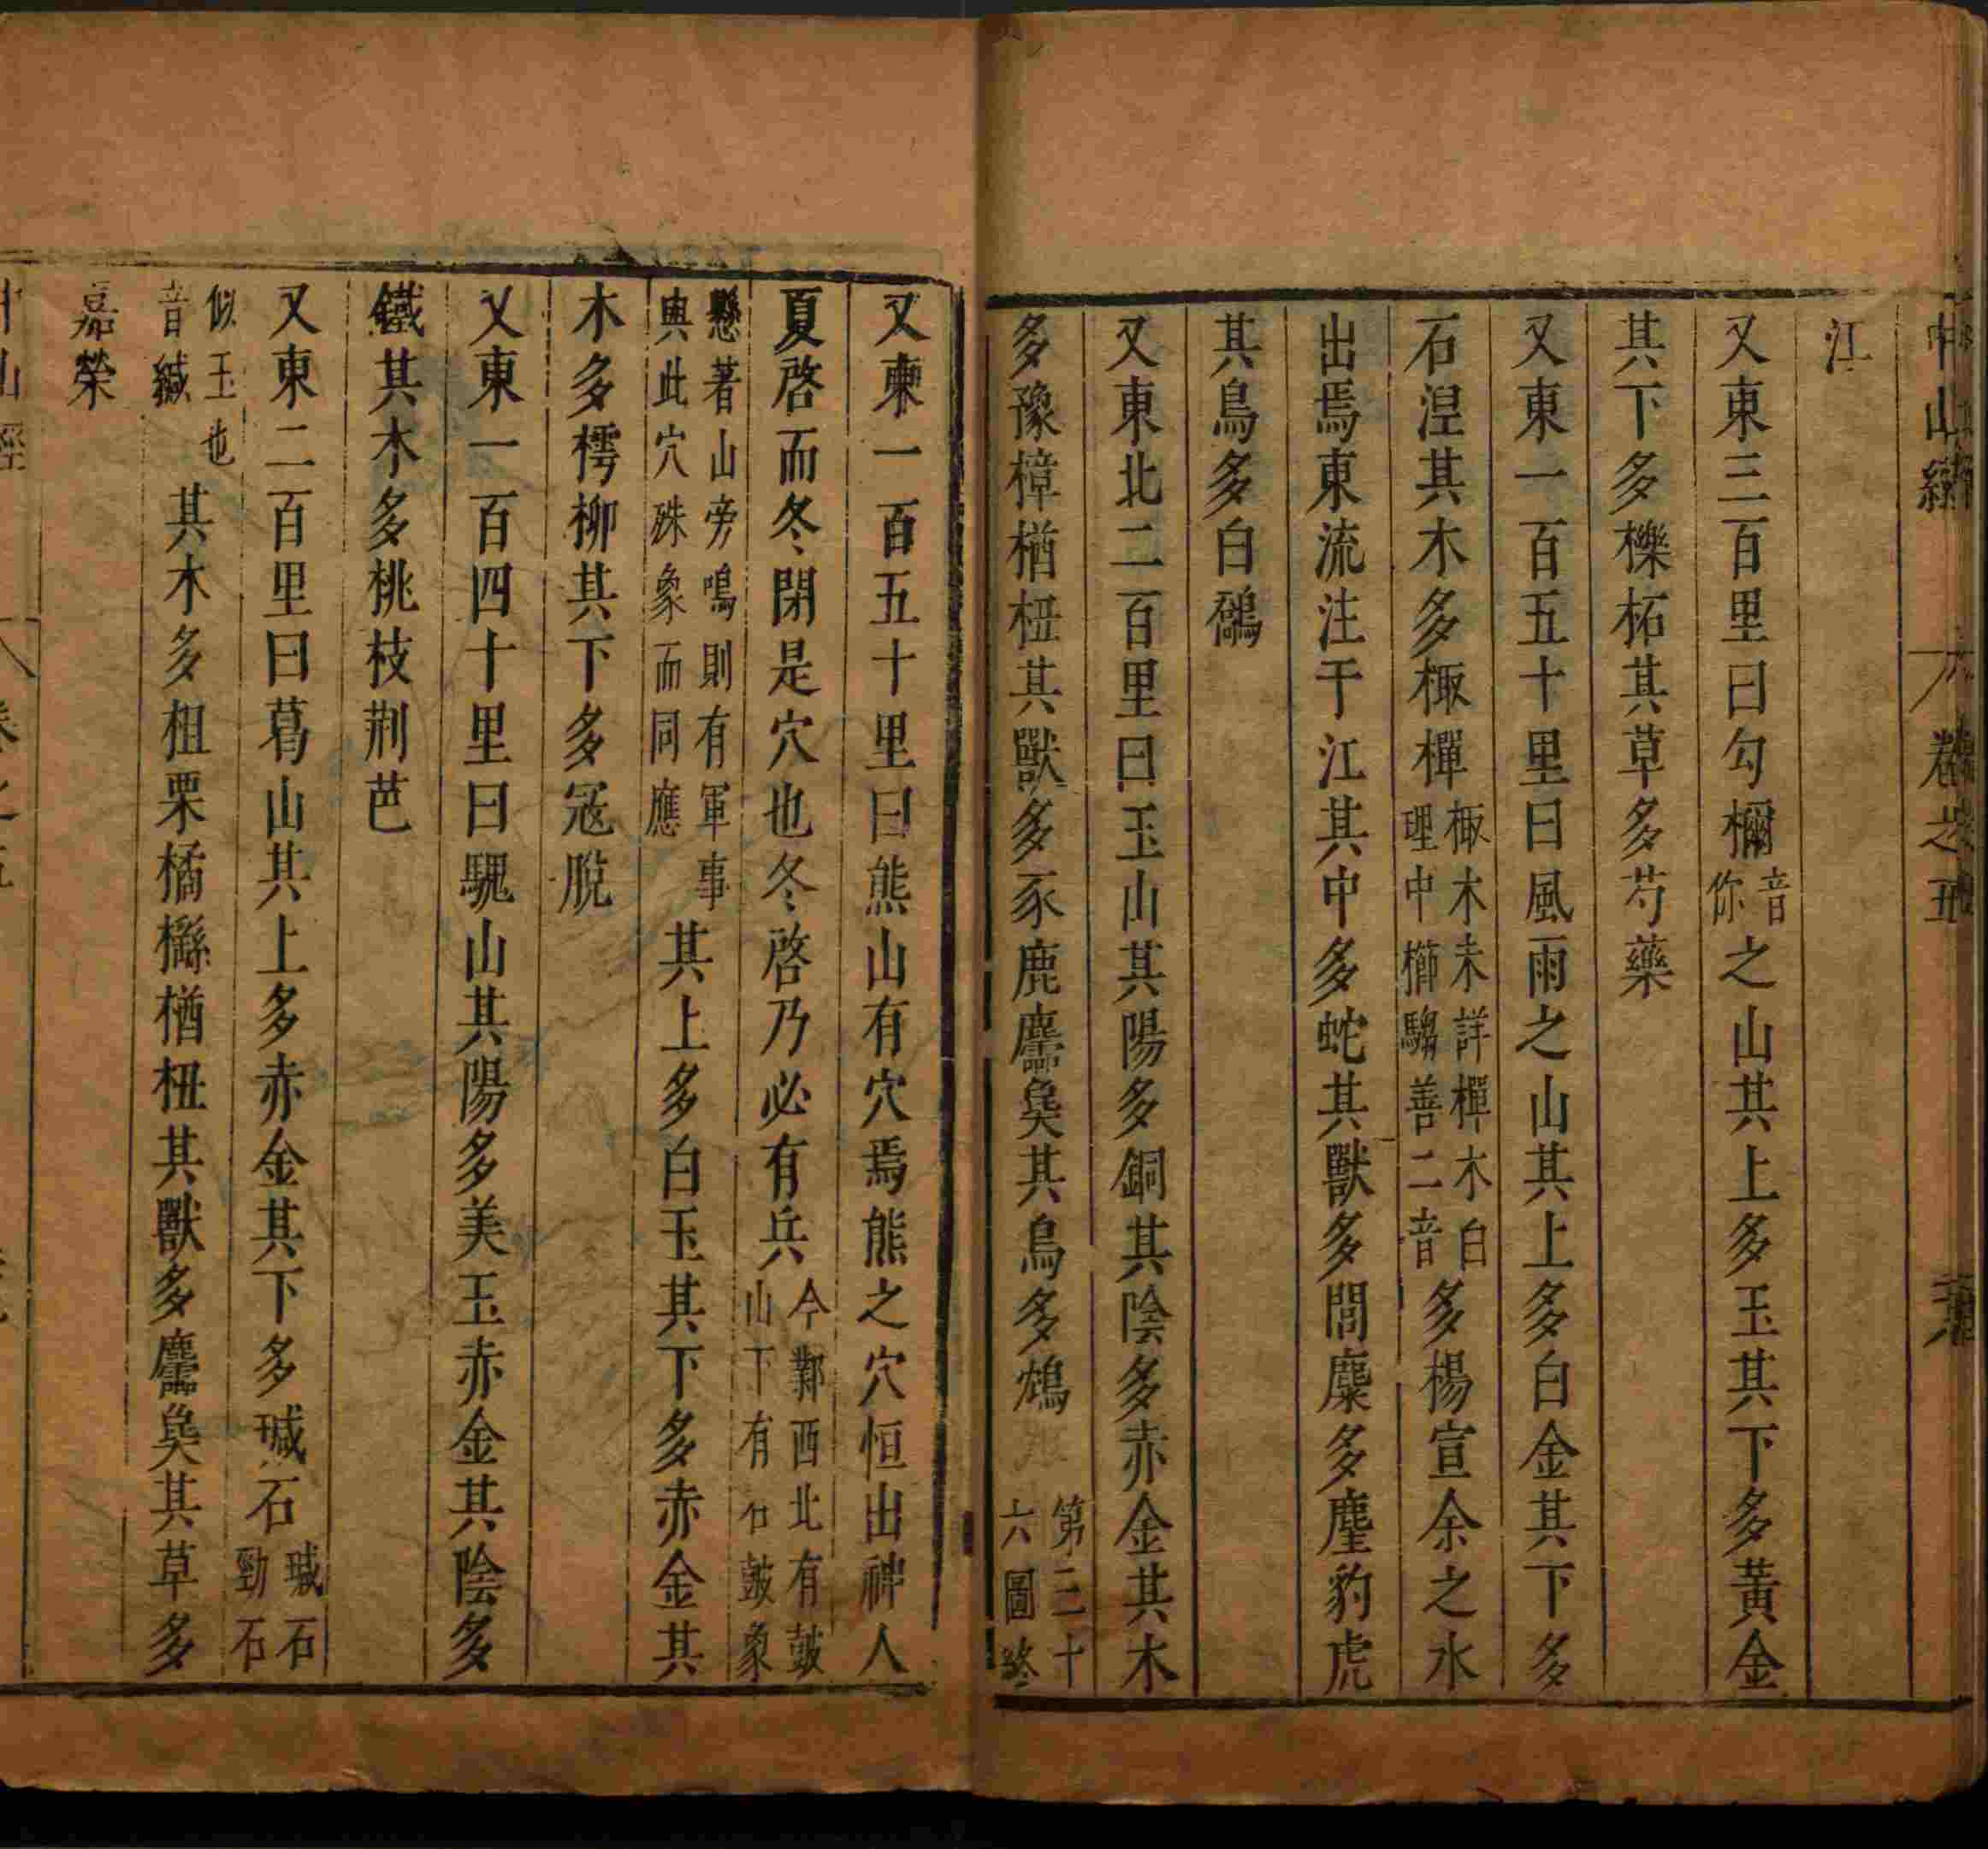 中山經 卷之五
江
又東三百里曰勾檷音你之山其上多玉其下多黃金
其下多櫟柘其草多芍藥
又東一百五十里曰風雨之山其上多白金其下多
石涅其木多棷樿棷木未詳樿木白理中櫛驺善二音多楊宣余之水
出焉東流注于江其中多蛇其獸多閭麋多麈豹虎
其鳥多白鷮
又東北二百里曰玉山其陽多銅其陰多赤金其木
多豫樟楢杻其獸多豕鹿麢㚟其鳥多鴆第三十六圖終
又東一百五十里曰熊山有穴焉熊之穴恒出神人
夏啓而冬閉是穴也冬啓乃必有兵今鄴西北有鼓山下有石鼓象
懸著山旁鳴則有軍事與此穴殊象而同應其上多白玉其下多赤金其
木多樗柳其下多寇脫
又東一百四十里曰騩山其陽多美玉赤金其陰多
鐵其木多桃枝荆芭
又東二百里曰葛山其上多赤金其下多瑊石瑊石勁石
似玉也音緘其木多柤栗橘櫾楢杻其獸多麢㚟其草多
嘉榮